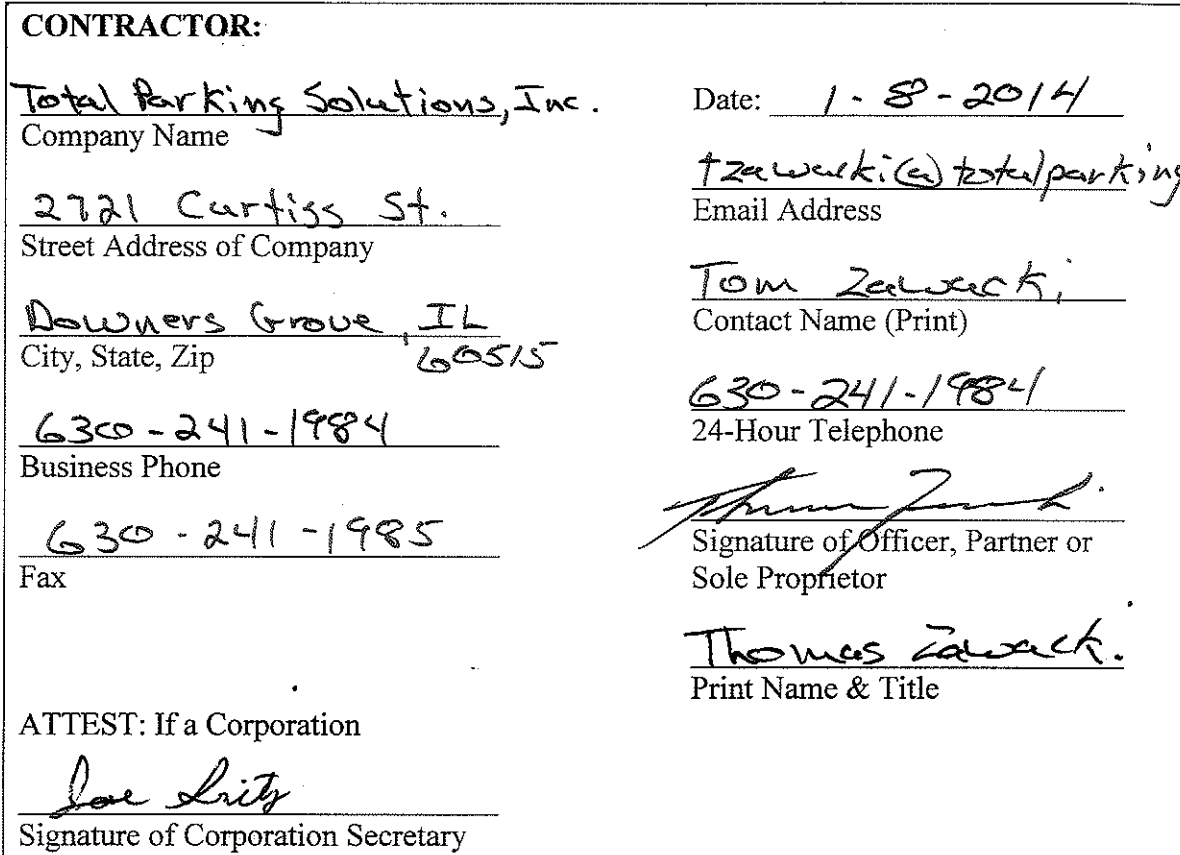 CONTRACTOR:
Total Parking Solutions, Inc.
Company Name
2721 Curtiss St.
Street Address of Company
Downers Grove, IL
60515
City, State, Zip
630-241-1984
Business Phone
630-241-1985
Fax
ATTEST: If a Corporation
Signature of Corporation Secretary
Date: 1-8-2014
tzawacki@totalparking
Email Address
Tom Zawacki
Contact Name (Print)
630-241-1984
24-Hour Telephone
Signature of Officer, Partner or
Sole Proprietor
Thomas Zawacki
Print Name & Title